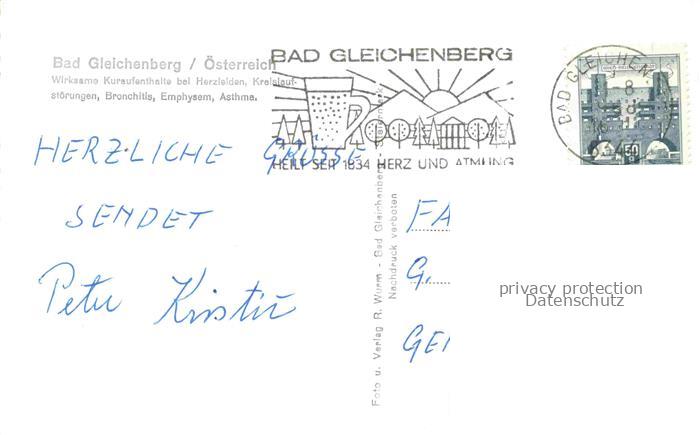 Bad Gleichenberg / Österreich
Wirksame Kuraufenthalte bei Herzleiden, Kreislauf-
störungen, Bronchitis, Emphysem, Asthma.
BAD GLEICHENBERG
HEILT SEIT 1834 HERZ UND ATMUNG
BAD GLEICHEN
HERZLICHE GRÜSSE
SENDET
Peter
Foto u. Verlag R. Wurm - Bad Gleichenberg, Steiermark
Nachdruck verboten
FA
G.
GEI
privacy protection
Datenschutz